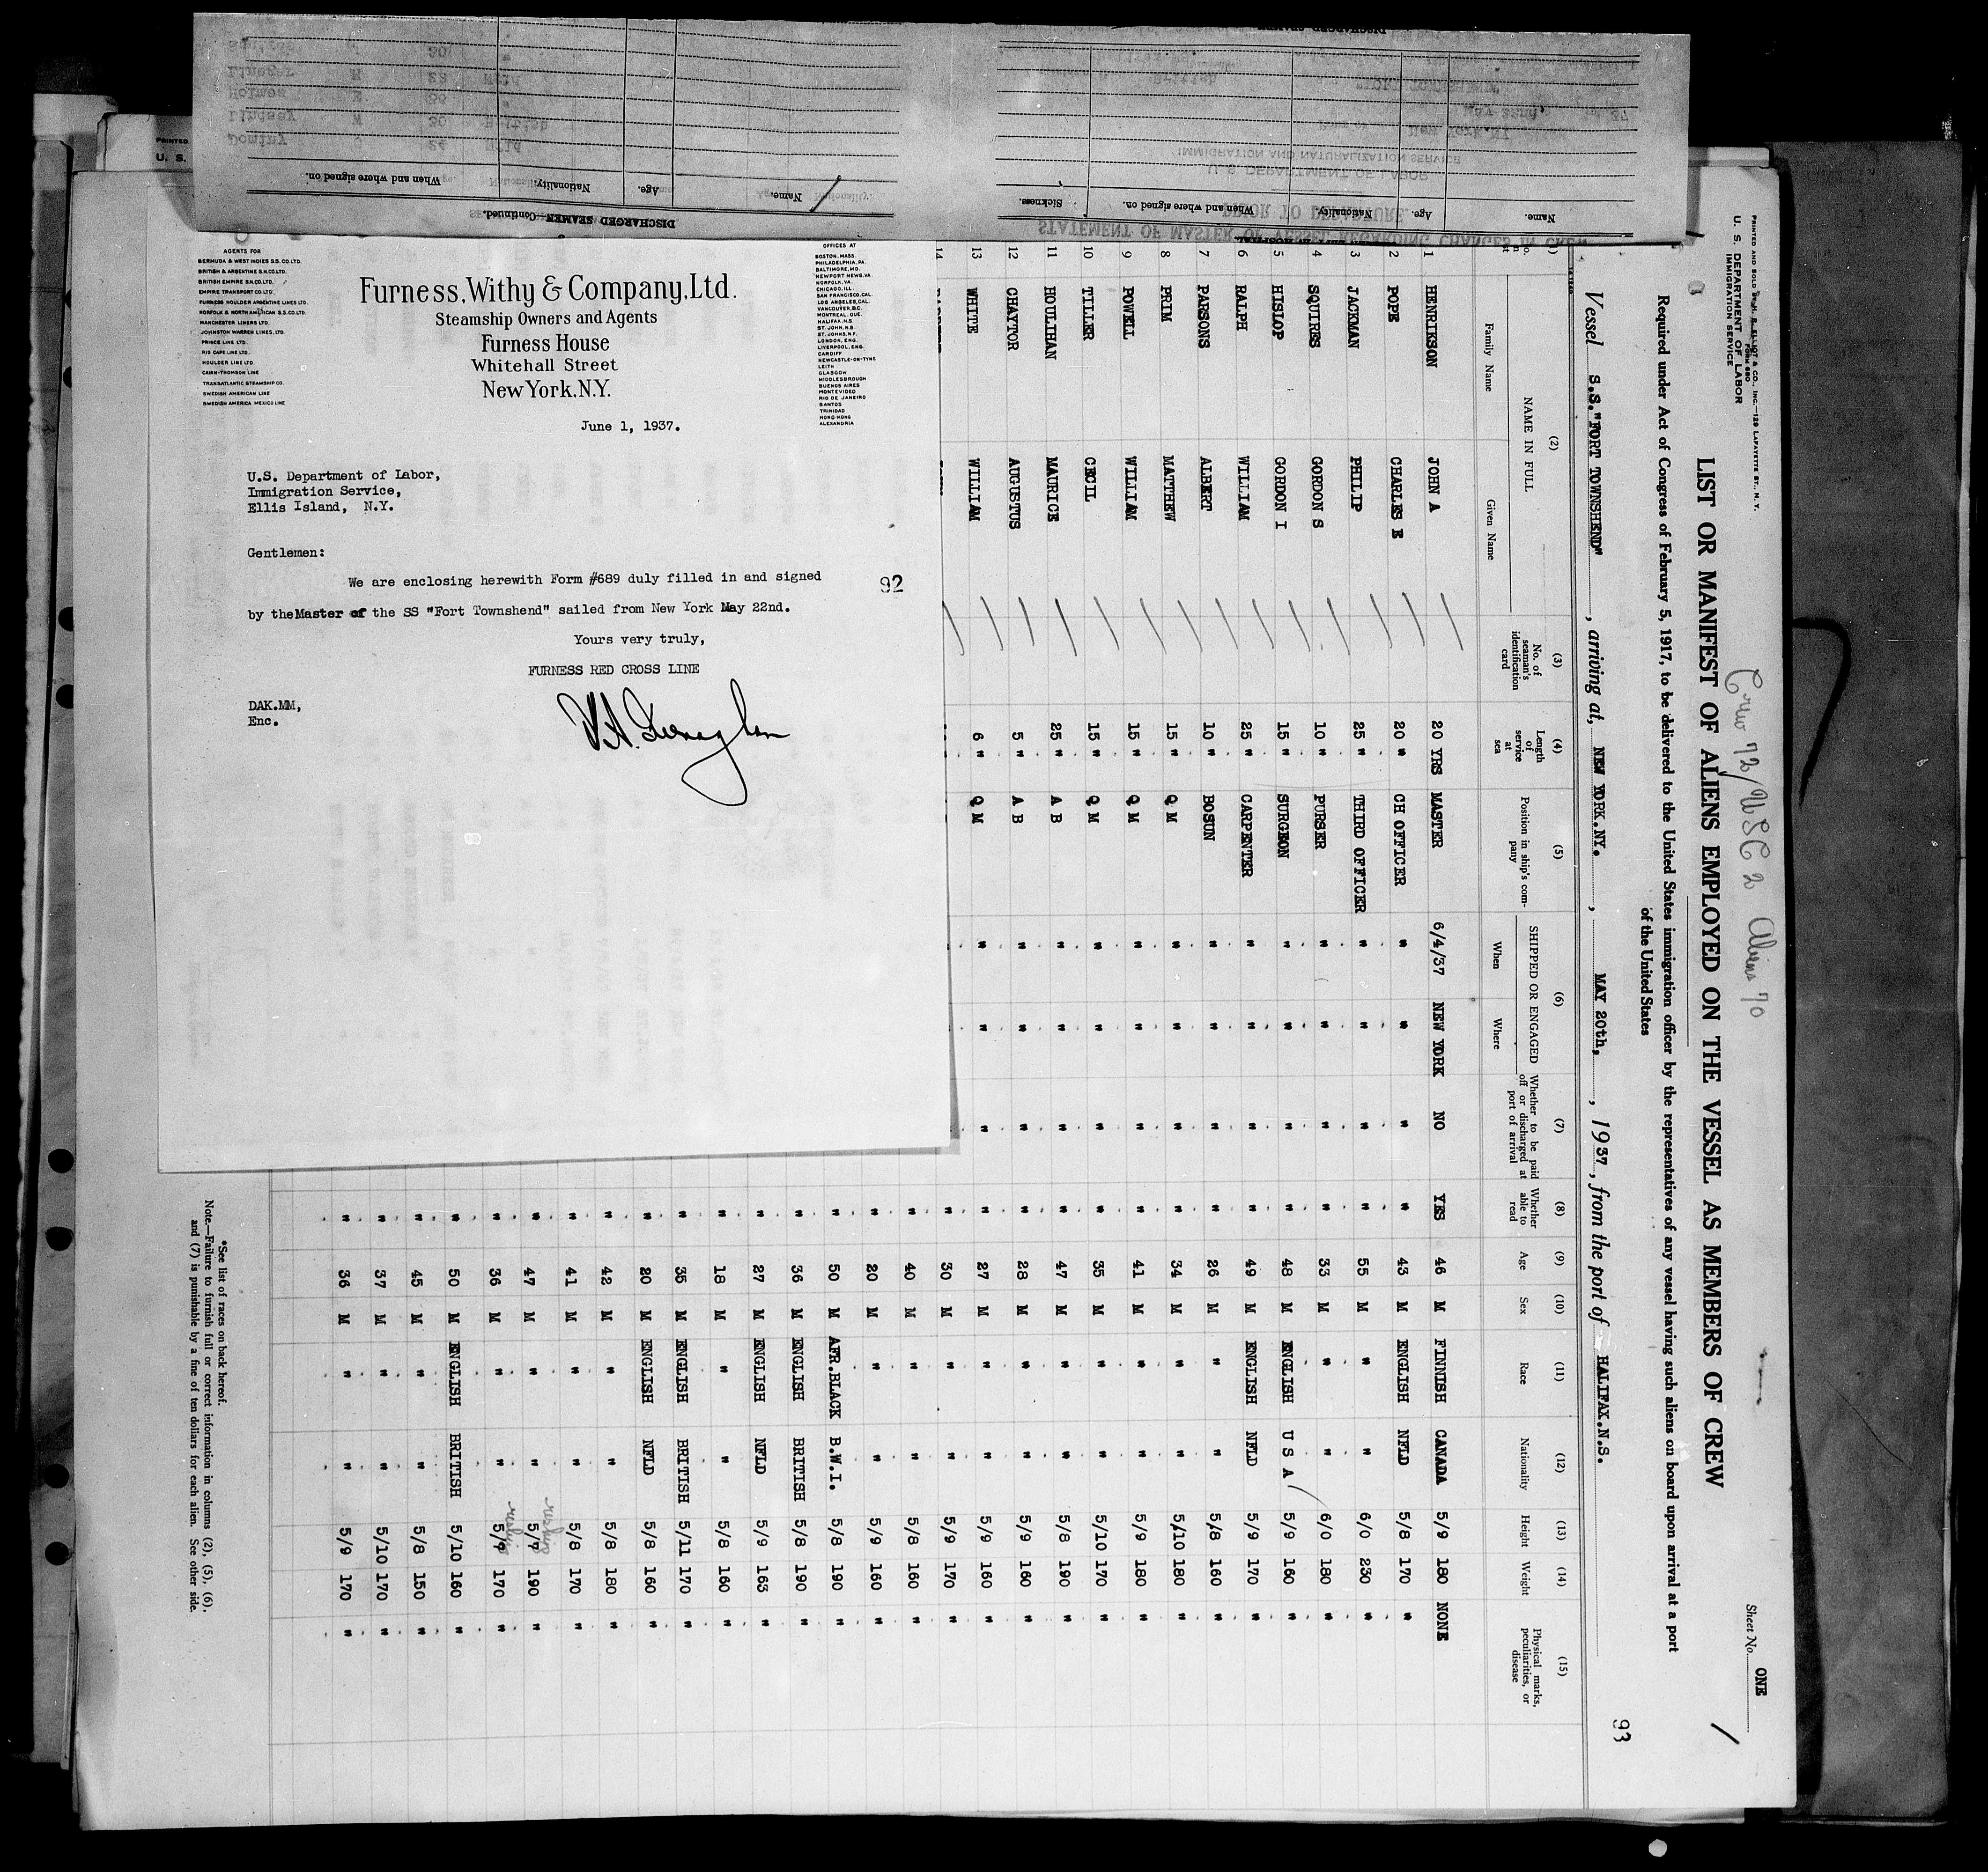 AGENTS FOR
BERMUDA & WEST INDIES S.S.CO.LTD.
BRITISH & ARGENTINE S.N.CO.LTD.
BRITISH EMPIRE S.N.CO.LTD.
EMPIRE TRANSPORT CO.LTD.
FURNESS HOULDER ARGENTINE LINES LTD.
NORFOLK & NORTH AMERICAN S.S.CO.LTD.
MANCHESTER LINERS LTD.
JOHNSTON WARREN LINES, LTD.
PRINCE LINE LTD.
RIO CAPE LINE LTD.
HOULDER LINE LTD.
CAIRN-THOMSON LINE
TRANSATLANTIC STEAMSHIP CO.
SWEDISH AMERICAN LINE
SWEDISH AMERICA MEXICO LINE
Furness, Withy & Company, Ltd.
Steamship Owners and Agents
Furness House
Whitehall Street
New York, N.Y.
OFFICES AT
BOSTON, MASS.
PHILADELPHIA, PA.
BALTIMORE, MD.
NEWPORT NEWS, VA.
NORFOLK, VA.
CHICAGO, ILL.
SAN FRANCISCO, CAL.
LOS ANGELES, CAL.
VANCOUVER, B.C.
MONTREAL, QUE.
HALIFAX, N.S.
ST. JOHN, N.B.
ST. JOHNS, N.F.
LONDON, ENG.
LIVERPOOL, ENG.
CARDIFF
NEWCASTLE-ON-TYNE
LEITH
GLASGOW
MIDDLESBROUGH
BUENOS AIRES
MONTEVIDEO
RIO DE JANEIRO
SANTOS
TRINIDAD
HONG-KONG
ALEXANDRIA
June 1, 1937.
U.S. Department of Labor,
Immigration Service,
Ellis Island, N.Y.
Gentlemen:
We are enclosing herewith Form #689 duly filled in and signed
92
by the Master of the SS "Fort Townshend" sailed from New York May 22nd.
Yours very truly,
FURNESS RED CROSS LINE
DAK.MM,
Enc.
DISCHARGED SEAMEN Continued.
Name. Age. Nationality. When and where signed on.
Name. Age. Nationality. When and where signed on. Sickness.
STATEMENT OF MASTER OF VESSEL REGARDING CHANGES IN CREW
PRIOR TO DEPARTURE
U. S. DEPARTMENT OF LABOR
IMMIGRATION AND NATURALIZATION SERVICE
U. S. DEPARTMENT OF LABOR
IMMIGRATION SERVICE
Crew 72/USC 2 Aliens 70
Sheet No. ONE
LIST OR MANIFEST OF ALIENS EMPLOYED ON THE VESSEL AS MEMBERS OF CREW
Required under Act of Congress of February 5, 1917, to be delivered to the United States immigration officer by the representatives of any vessel having such aliens on board upon arrival at a port
of the United States
Vessel S.S."FORT TOWNSHEND", arriving at, NEW YORK.NY., MAY 20th, 1937, from the port of HALIFAX.N.S.
93
(2) (3) (4) (5) (6) (7) (8) (9) (10) (11) (12) (13) (14) (15)
NAME IN FULL
Family Name Given Name
No. of seaman's identification card
Length of service at sea
Position in ship's company
SHIPPED OR ENGAGED
When Where
Whether to be paid off or discharged at port of arrival
Whether able to read
Age
Sex
Race
Nationality
Height
Weight
Physical marks, peculiarities, or disease
1 HENRIKSON JOHN A 20 YRS MASTER 6/4/37 NEW YORK NO YES 46 M FINNISH CANADA 5/9 180 NONE
2 POPE CHARLES E 20 " CH OFFICER " " " " 43 M ENGLISH NFLD 5/8 170 "
3 JACKMAN PHILIP 25 " THIRD OFFICER " " " " 55 M " " 6/0 230 "
4 SQUIRES GORDON S 10 " PURSER " " " " 33 M " " 6/0 180 "
5 HISLOP GORDON I 15 " SURGEON " " " " 48 M ENGLISH U S A 5/9 160 "
6 RALPH WILLIAM 25 " CARPENTER " " " " 49 M ENGLISH NFLD 5/9 170 "
7 PARSONS ALBERT 10 " BOSUN " " " " 26 M " " 5/8 160 "
8 PRIM MATTHEW 15 " Q M " " " " 34 M " " 5/10 180 "
9 POWELL WILLIAM 15 " Q M " " " " 41 M " " 5/9 180 "
10 TILLER CECIL 15 " Q M " " " " 35 M " " 5/10 170 "
11 HOULIHAN MAURICE 25 " A B " " " " 47 M " " 5/8 190 "
12 CHAYTOR AUGUSTUS 5 " A B " " " " 28 M " " 5/9 160 "
13 WHITE WILLIAM 6 " Q M " " " " 27 M " " 5/9 160 "
14 " 30 M " " 5/9 170 "
" 40 M " " 5/8 160 "
" 20 M " " 5/9 160 "
" 50 M AFR.BLACK B.W.I. 5/8 190 "
" 36 M ENGLISH BRITISH 5/8 190 "
" 27 M ENGLISH NFLD 5/9 163 "
" 18 M " " 5/8 160 "
" 35 M ENGLISH BRITISH 5/11 170 "
" 20 M ENGLISH NFLD 5/8 160 "
" 42 M " " 5/8 180 "
" 41 M " " 5/8 170 "
" 47 M " " 5/7 190 "
" 36 M " " 5/9 170 "
" 50 M ENGLISH BRITISH 5/10 160 "
" 45 M " " 5/8 150 "
" 37 M " " 5/10 170 "
" 36 M " " 5/9 170 "
*See list of races on back hereof.
Note.—Failure to furnish full or correct information in columns (2), (5), (6),
and (7) is punishable by a fine of ten dollars for each alien. See other side.